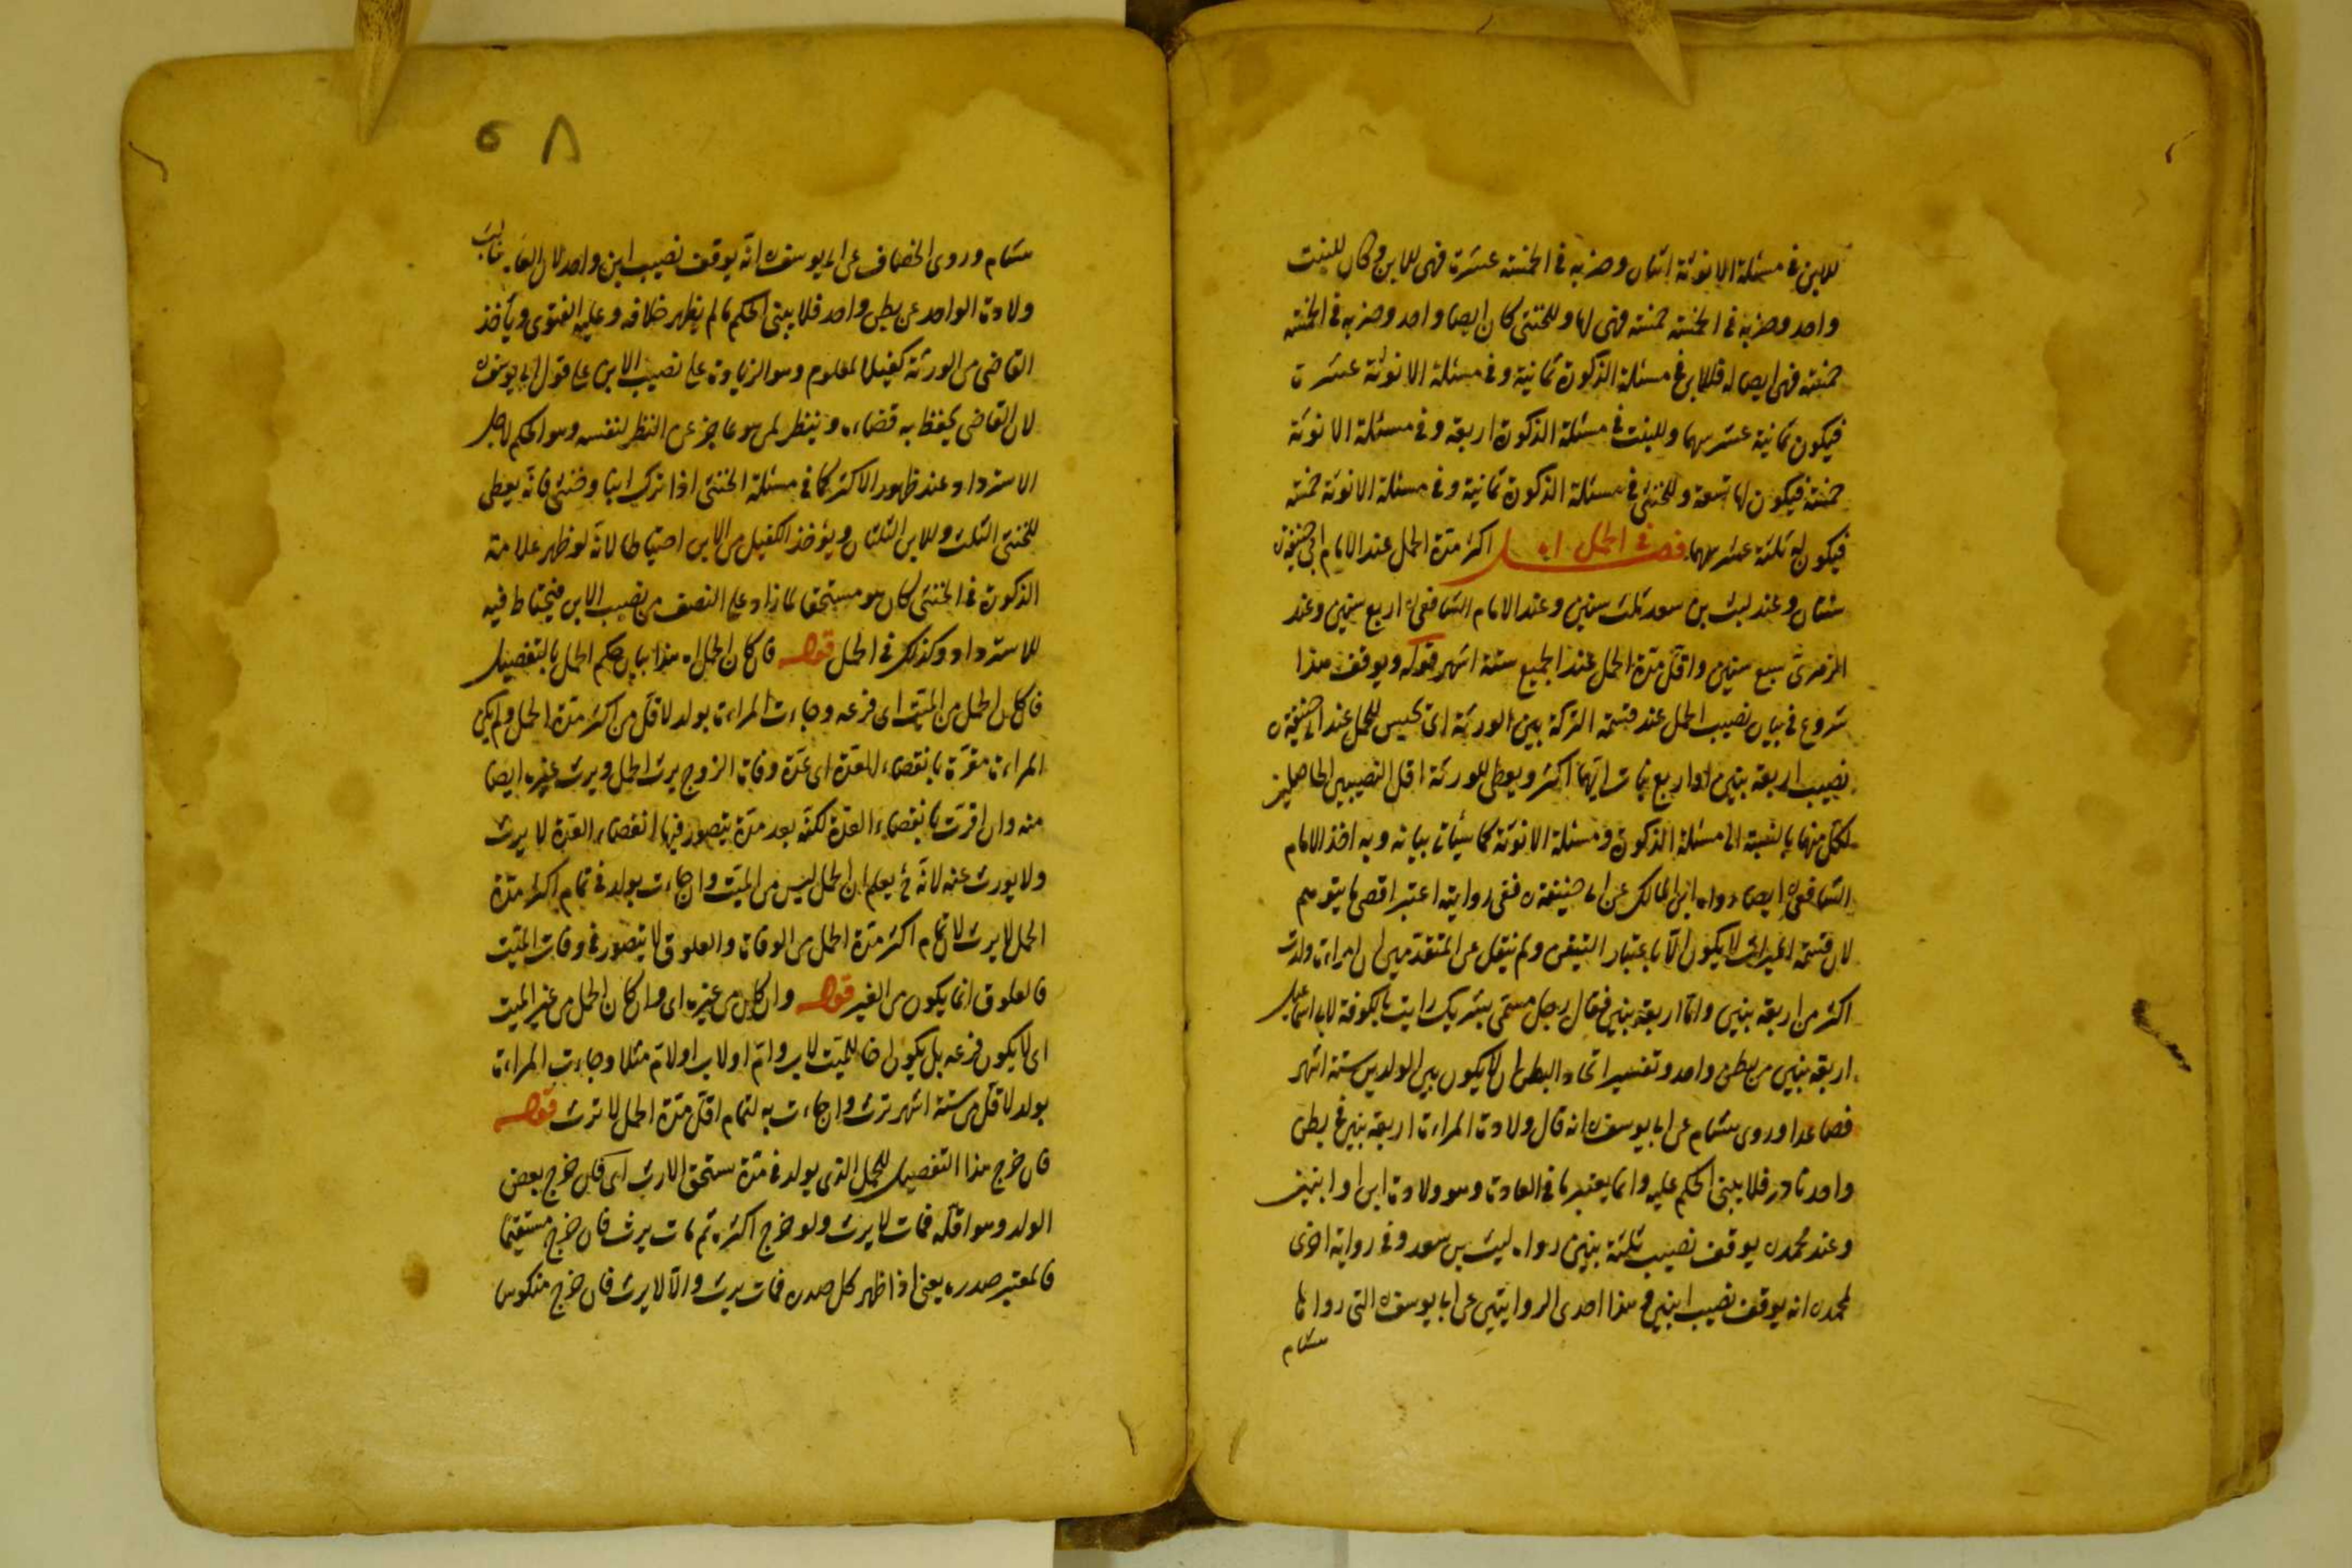 للابن في مسئلة الانوثة اثنان وضربه في الخمسة عشرة فهى للابن وكان للبنت
واحد وضربه في الخمسة خمسة فهى لها وللخنثى كان ايضا واحد وضربه في الخمسة
خمسة فهى ايضا له فللابن في مسئلة الذكورة ثمانية وفي مسئلة الانوثة عشرة
فيكون ثمانية عشر سهما وللبنت في مسئلة الذكورة اربعة وفي مسئلة الانوثة
خمسة فيكون لها تسعة وللخنثى في مسئلة الذكورة ثمانية وفي مسئلة الانوثة خمسة
فيكون له ثلثة عشر سهما فصل في الحمل اكثر مدة الحمل عند الامام ابي حنيفة ره
سنتان وعند ليث بن سعد ثلث سنين وعند الامام الشافعى ره اربع سنين وعند
الزهرى سبع سنين واقل مدة الحمل عند الجميع ستة اشهر قوله ويوقف هذا
شروع في بيان نصيب الحمل عند قسمة التركة بين الورثة اى يحبس للحمل عند ابي حنيفة ره
نصيب اربعة بنين او اربع بنات ايهما اكثر ويعطى للورثة اقل النصيبين الحاصلين
لكل منهما بالنسبة الى مسئلة الذكورة ومسئلة الانوثة كما سيأتى بيانه وبه اخذ الامام
الشافعى ره ايضا رواه ابن المبارك عن ابى حنيفة ره ففى روايته اعتبر اقصى ما يتوهم
لان قسمة الميراث لا يكون الا باعتبار التيقن ولم ينقل عن المتقدمين ان امراءة ولدت
اكثر من اربعة بنين واما اربعة بنين فقال رجل مسمى بشريك رايت بالكوفة لابى اسماعيل
اربعة بنين من بطن واحد وتفسير اتحاد البطن ان لا يكون بين الولدين ستة اشهر
فصاعدا وروى هشام عن ابى يوسف ره انه قال ولادة المراءة اربعة بنين في بطن
واحد نادر فلا يبنى الحكم عليه وانما يعتبر ما في العادة وهو ولادة ابن او ابنين
وعند محمد ره يوقف نصيب ثلثة بنين رواه ليث بن سعد وفي رواية اخرى
لمحمد ره انه يوقف نصيب ابنين وهذا احدى الروايتين عن ابى يوسف ره التى رواها
هشام
٥٨
هشام وروى الخصاف عن ابى يوسف ره انه يوقف نصيب ابن واحد لان الغالب
ولادة الواحد عن بطن واحد فلا يبنى الحكم ما لم يظهر خلافه وعليه الفتوى ويأخذ
القاضى من الورثة كفيلا لمعلوم وهو الزيادة على نصيب الابن على قول ابى يوسف ره
لان القاضى يحفظ به قضاءه وينظر لمن هو عاجز عن النظر لنفسه وهو الحكم لاجل
الاسترداد عند ظهور الاكثر كما في مسئلة الخنثى اذا ترك ابنا وخنثى فانه يعطى
للخنثى الثلث وللابن الثلثان ويؤخذ الكفيل من الابن احتياطا لانه لو ظهر علامة
الذكورة في الخنثى كان هو مستحقا لما زاد على النصف من نصيب الابن فيحتاط فيه
للاسترداد وكذلك في الحمل قوله فان كان الحمل اه هذا بيان حكم الحمل بالتفصيل
فان كان الحمل من الميت اى فرعه وجاءت المراءة بولد لاقل من اكثر مدة الحمل ولم يكن
المراءة مقرة بانقضاء العدة اى عدة وفات الزوج يرث الحمل ويرث غيره ايضا
منه وان اقرت بانقضاء العدة لكنه بعد مدة يتصور فيها انقضاء العدة لا يرث
ولا يورث عنه لانه ح يعلم ان الحمل ليس من الميت وان جاءت بولد في تمام اكثر مدة
الحمل لا يرث لان تمام اكثر مدة الحمل من الوفات والعلوق لا يتصور في وفات الميت
فالعلوق انما يكون من الغير قوله وان كان من غيره اى وان كان الحمل من غير الميت
اى لا يكون فرعه بل يكون اخا للميت لاب وام او لاب او لام مثلا وجاءت المراءة
بولد لاقل من ستة اشهر ترث وان جاءت به لتمام اقل مدة الحمل لا ترث قوله
فان خرج هذا التفصيل للحمل الذى يولد في مدة يستحق الارث اى فان خرج بعض
الولد وهو اقله فمات لا يرث ولو خرج اكثره ثم مات يرث فان خرج مستقيما
فالمعتبر صدره يعنى اذا ظهر كل صدره فمات يرث والا لا يرث فان خرج منكوس